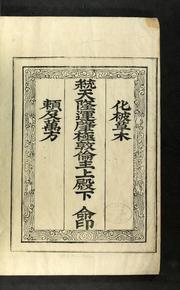 化被草木
統天隆運肇極敦倫主上殿下 命印
賴及萬方